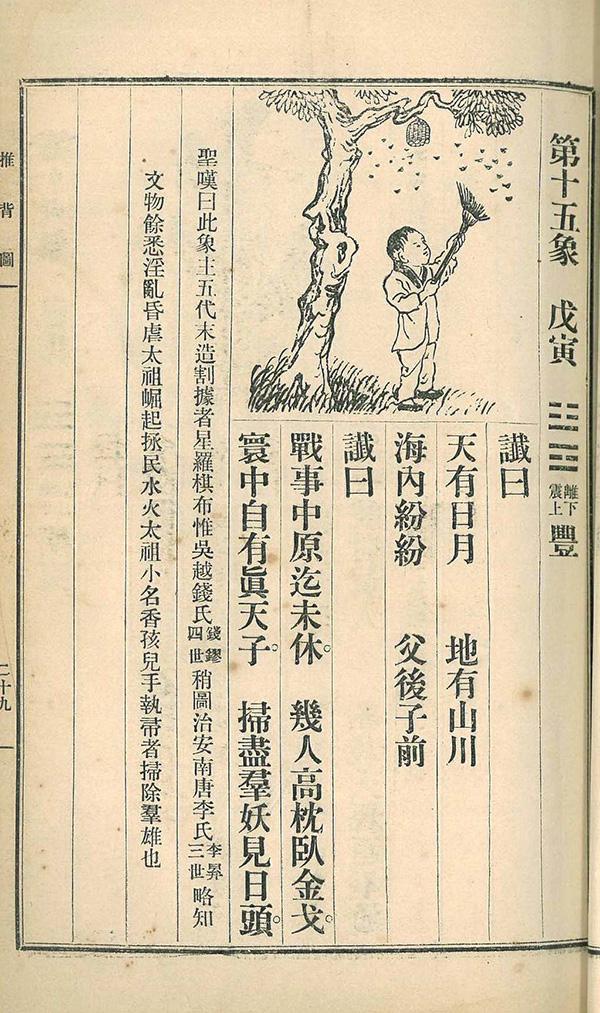 第十五象 戊寅 ䷶ 離下震上 豐
讖曰
天有日月 地有山川
海內紛紛 父後子前
讖曰
戰事中原迄未休 幾人高枕臥金戈
寰中自有眞天子 掃盡羣妖見日頭
聖嘆曰此象主五代末造割據者星羅棋布惟吳越錢氏錢鏐四世稍圖治安南唐李氏李昪三世略知
文物餘悉淫亂昏虐太祖崛起拯民水火太祖小名香孩兒手執帚者掃除羣雄也
推背圖
二十九